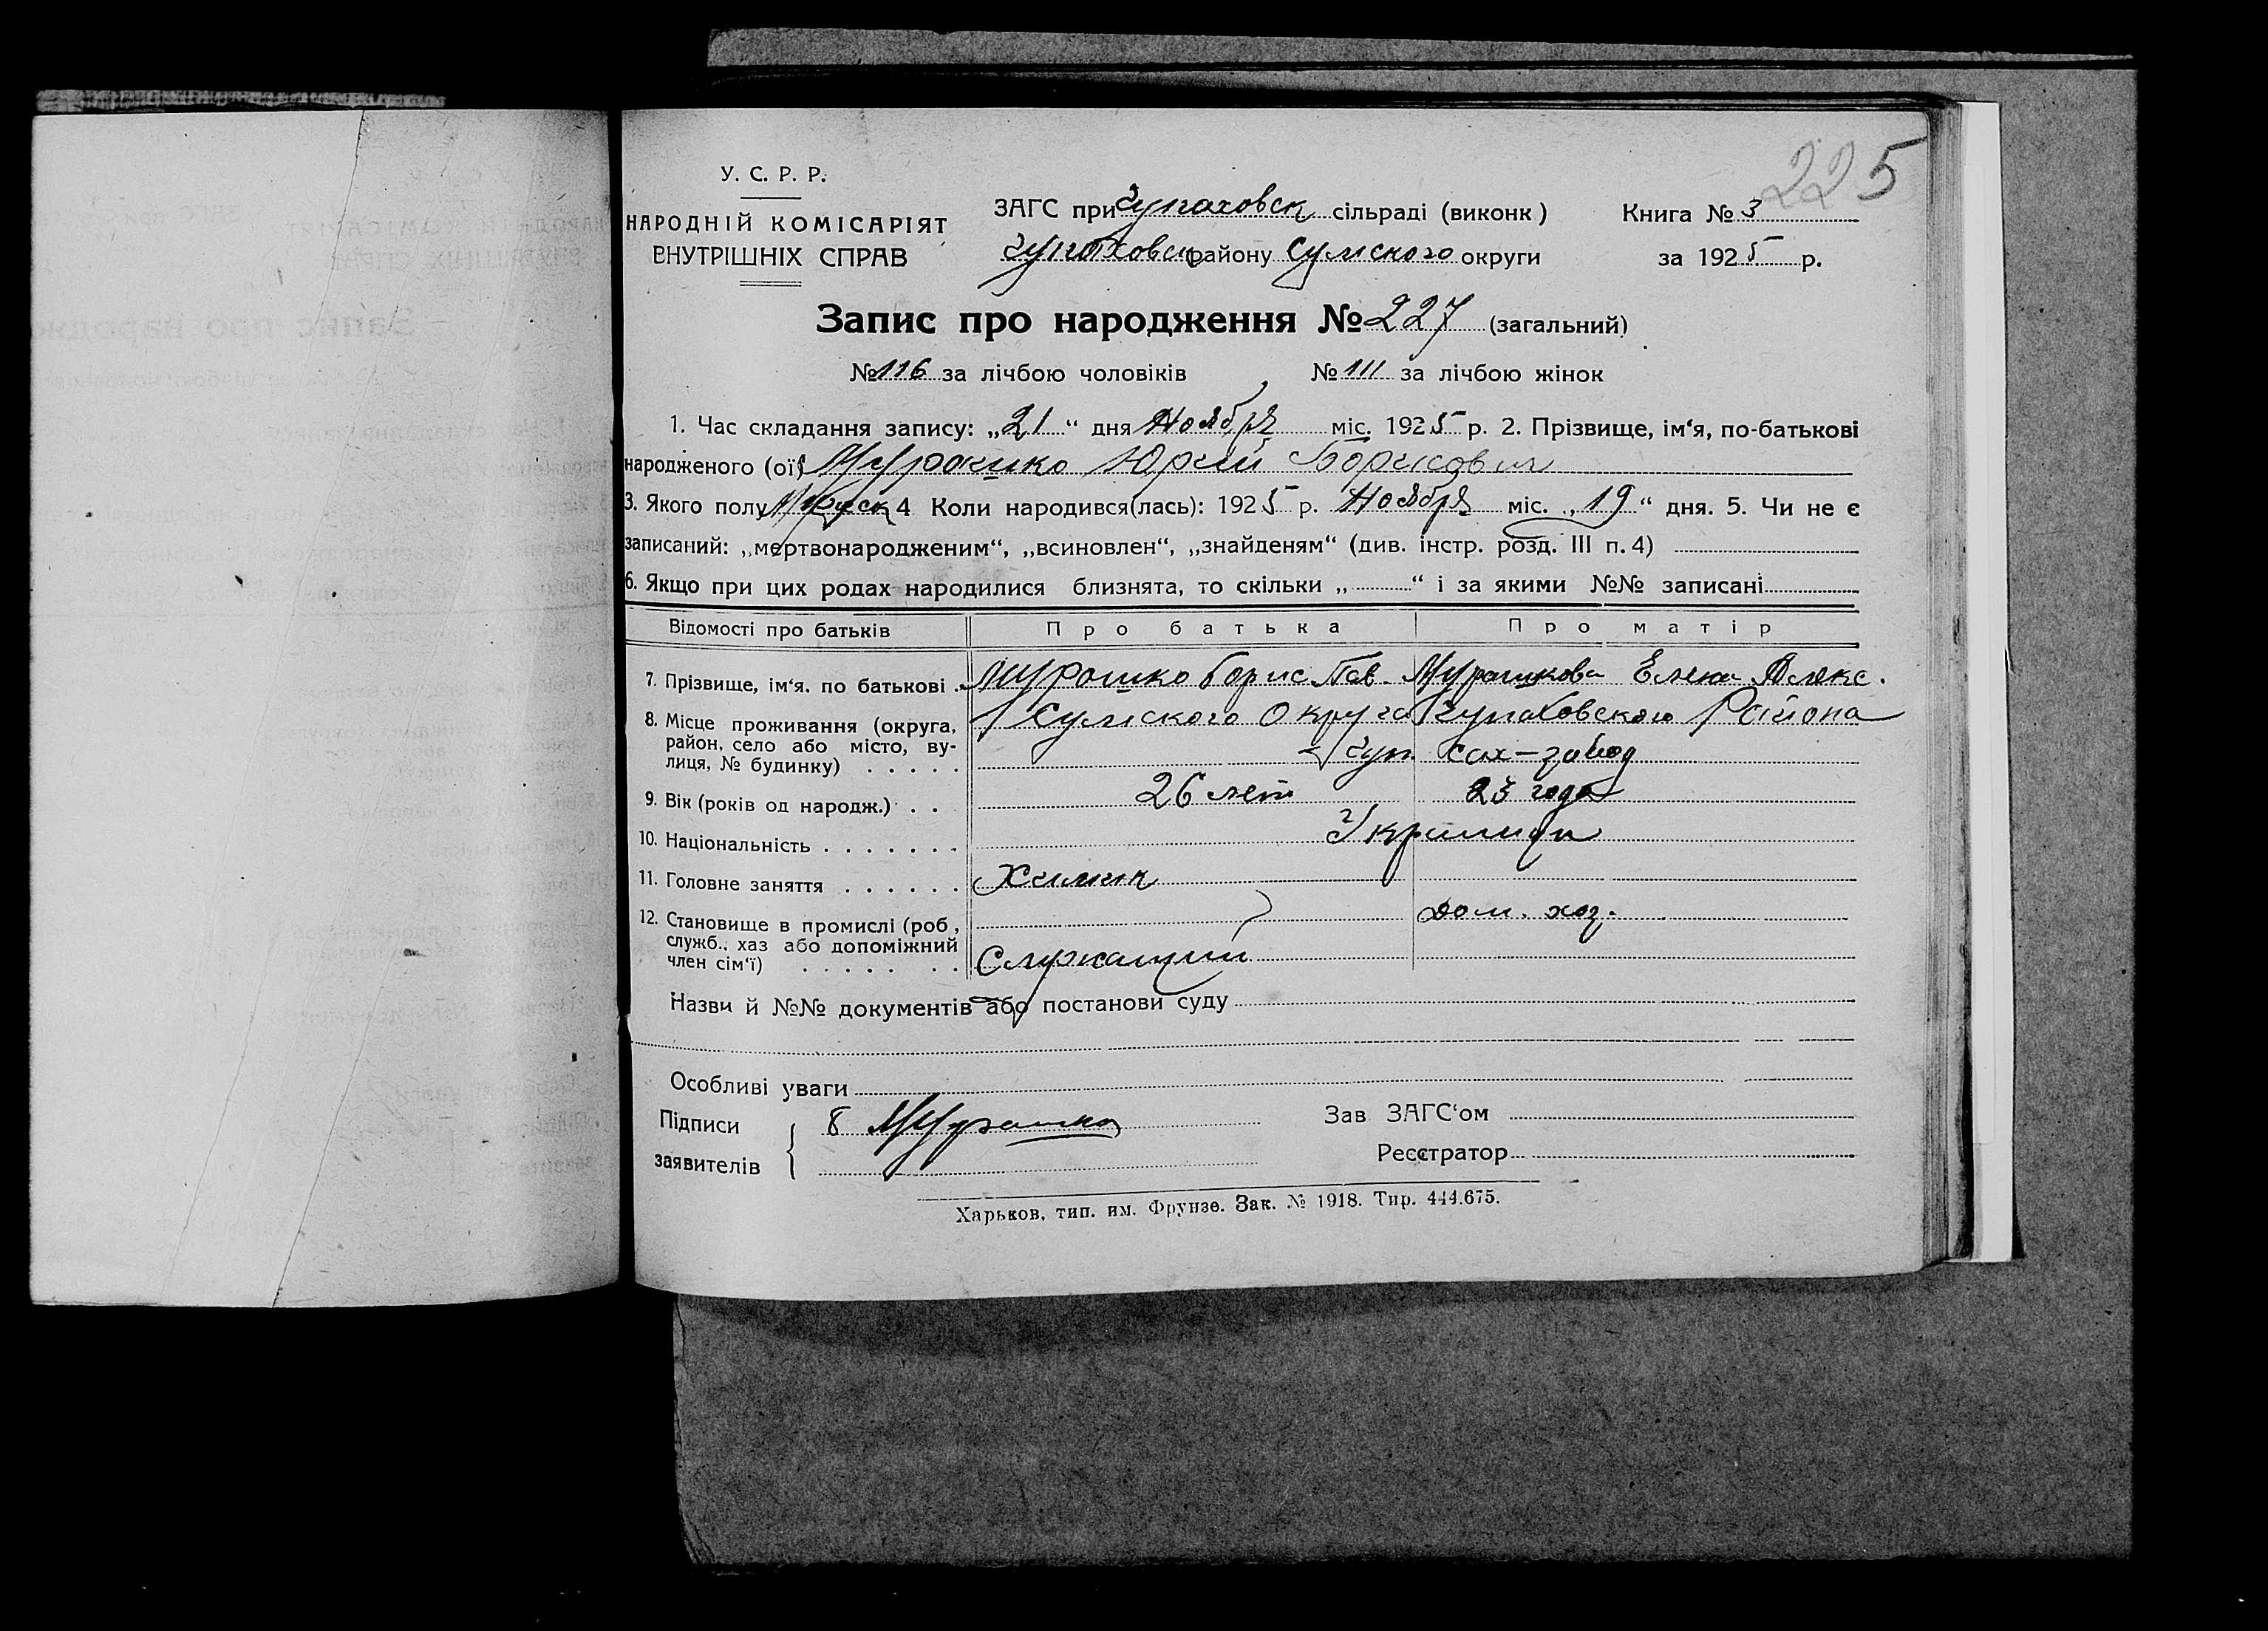 225
У. С. Р. Р.
НАРОДНІЙ КОМІСАРІЯТ
ВНУТРІШНІХ СПРАВ
ЗАГС при Чупаховск сільраді (виконк)
Чупаховск району Сумского округи
Книга № 3
за 1925 р.
Запис про народження № 227 (загальний)
№ 116 за лічбою чоловіків № 111 за лічбою жінок
1. Час складання запису: „21“ дня Ноября міс. 1925 р. 2. Прізвище, ім‘я, по-батькові
народженого (ої) Мурашко Юрий Борисович
3. Якого полу Мужск 4 Коли народився(лась): 1925 р. Ноября міс. „19“ дня. 5. Чи не є
записаний: „мертвонародженим“, „всиновлен“, „знайденям“ (див. інстр. розд. III п. 4)
6. Якщо при цих родах народилися близнята, то скільки „ “ і за якими №№ записані
Відомості про батьків Про батька Про матір
7. Прізвище, ім‘я. по батькові Мурашко Борис Пав. Мурашкова Елена Алекс.
8. Місце проживання (округа, район, село або місто, вулиця, № будинку) Сумского Округа Чупаховского Района
Чуп. Сах-завод
9. Вік (років од народж.) 26 лет 23 года
10. Національність Украинцы
11. Головне заняття Химик
12. Становище в промислі (роб, служб., хаз або допоміжний член сім‘ї) Служащий Дом. хоз.
Назви й №№ документів або постанови суду
Особливі уваги
Підписи заявителів Б Мурашко
Зав ЗАГС‘ом
Реєстратор
Харьков, тип. им. Фрунзе. Зак. № 1918. Тир. 444.675.